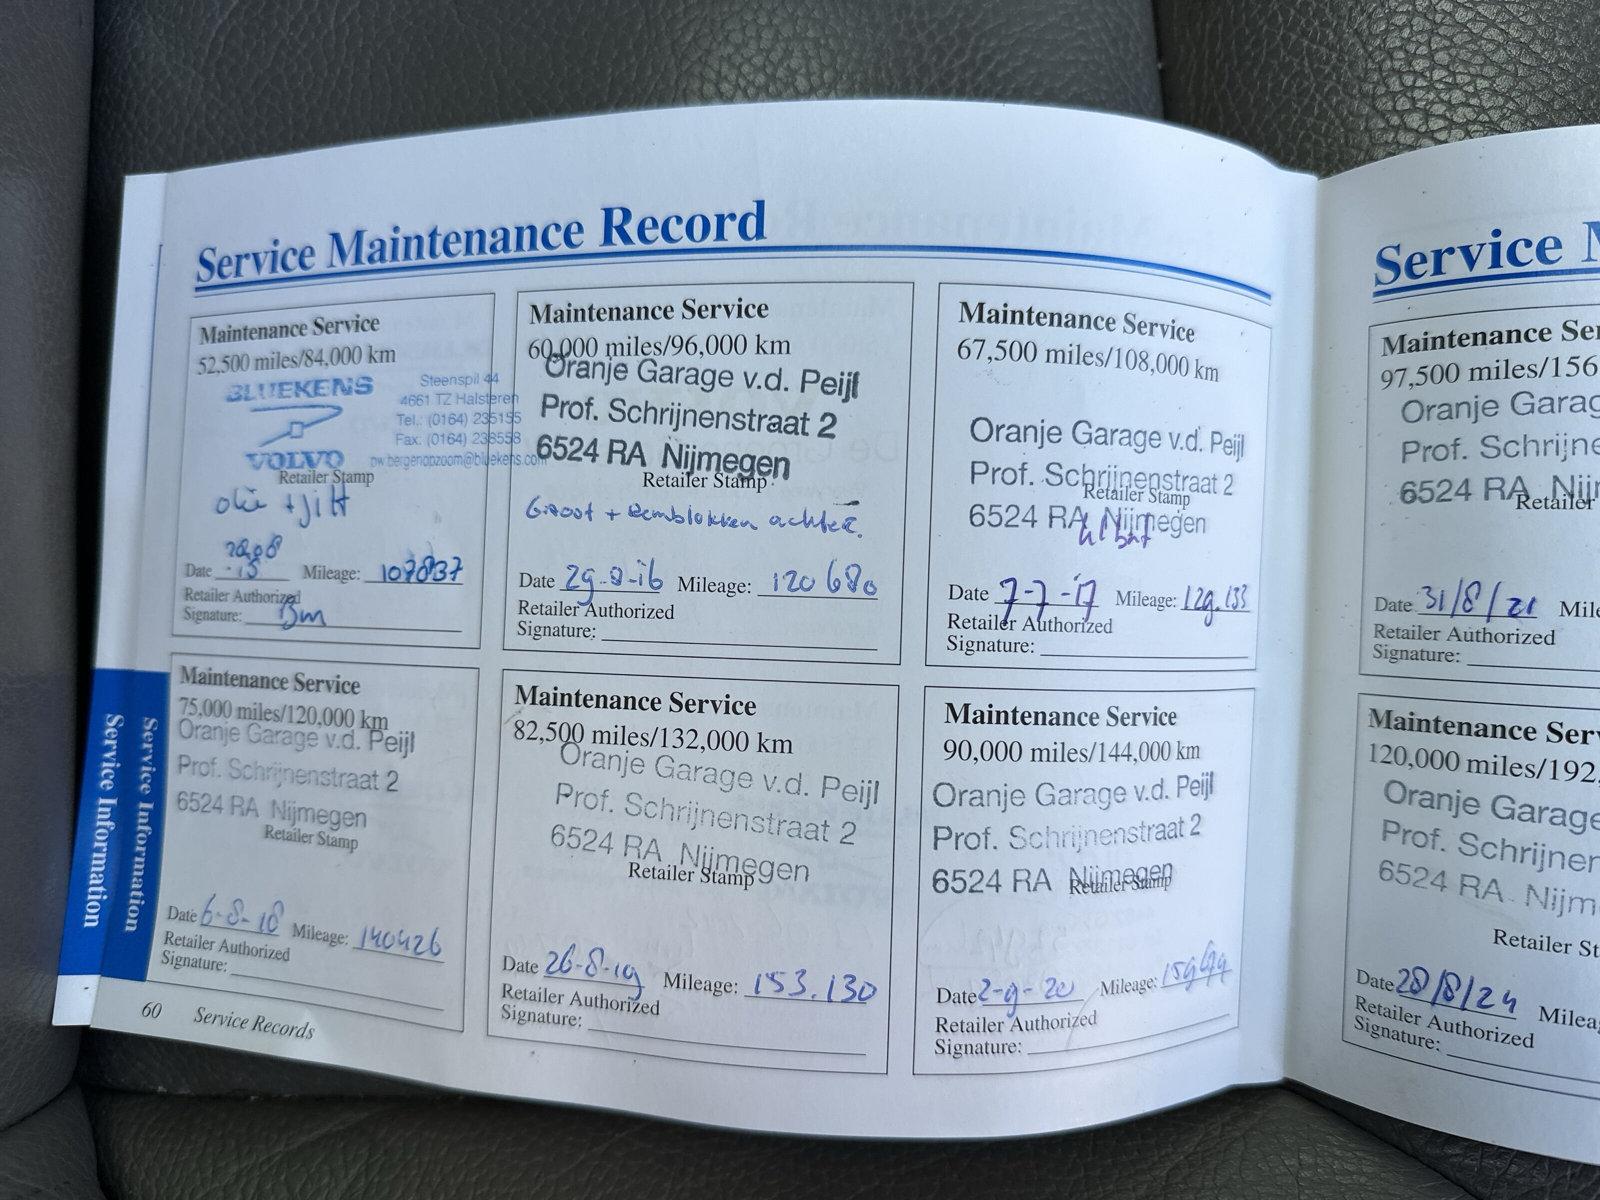 Service Maintenance Record
Maintenance Service
52,500 miles/84,000 km
BLUEKENS
VOLVO
Steenspil 44
4661 TZ Halsteren
Tel.: (0164) 235155
Fax: (0164) 238558
pw.bergenopzoom@bluekens.com
Retailer Stamp
olie + filt
Date 28.08 -15 Mileage: 107837
Retailer Authorized
Signature: Bm
Maintenance Service
60,000 miles/96,000 km
Oranje Garage v.d. Peijl
Prof. Schrijnenstraat 2
6524 RA Nijmegen
Retailer Stamp
Groot + Remblokken achter.
Date 29-8-16 Mileage: 120680
Retailer Authorized
Signature:
Maintenance Service
67,500 miles/108,000 km
Oranje Garage v.d. Peijl
Prof. Schrijnenstraat 2
Retailer Stamp
6524 RA Nijmegen
Date 7-7-'17 Mileage: 129.133
Retailer Authorized
Signature:
Maintenance Service
75,000 miles/120,000 km
Oranje Garage v.d. Peijl
Prof. Schrijnenstraat 2
6524 RA Nijmegen
Retailer Stamp
Date 6-8-18 Mileage: 140426
Retailer Authorized
Signature:
Maintenance Service
82,500 miles/132,000 km
Oranje Garage v.d. Peijl
Prof. Schrijnenstraat 2
6524 RA Nijmegen
Retailer Stamp
Date 26-8-19 Mileage: 153.130
Retailer Authorized
Signature:
Maintenance Service
90,000 miles/144,000 km
Oranje Garage v.d. Peijl
Prof. Schrijnenstraat 2
6524 RA Nijmegen
Retailer Stamp
Date 2-9-20 Mileage:
Retailer Authorized
Signature:
Service Information
Service Information
60 Service Records
Service M
Maintenance Ser
97,500 miles/156
Oranje Garag
Prof. Schrijne
6524 RA Nij
Retailer
Date 31/8/21 Mile
Retailer Authorized
Signature:
Maintenance Serv
120,000 miles/192,
Oranje Garage
Prof. Schrijner
6524 RA Nijm
Retailer St
Date 28/8/24 Milea
Retailer Authorized
Signature: